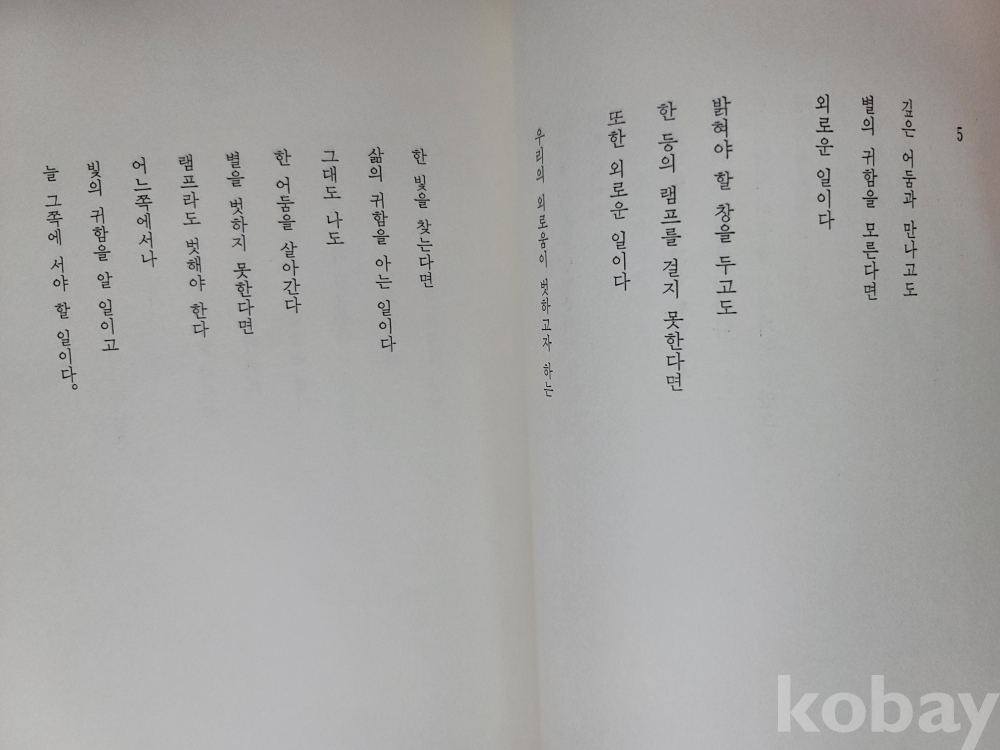 5
깊은 어둠과 만나고도
별의 귀함을 모른다면
외로운 일이다
밝혀야 할 창을 두고도
한 등의 램프를 걸지 못한다면
또한 외로운 일이다
우리의 외로움이 벗하고자 하는
한 빛을 찾는다면
삶의 귀함을 아는 일이다
그대도 나도
한 어둠을 살아간다
별을 벗하지 못한다면
램프라도 벗해야 한다
어느쪽에서나
빛의 귀함을 알 일이고
늘 그쪽에 서야 할 일이다。
kobay